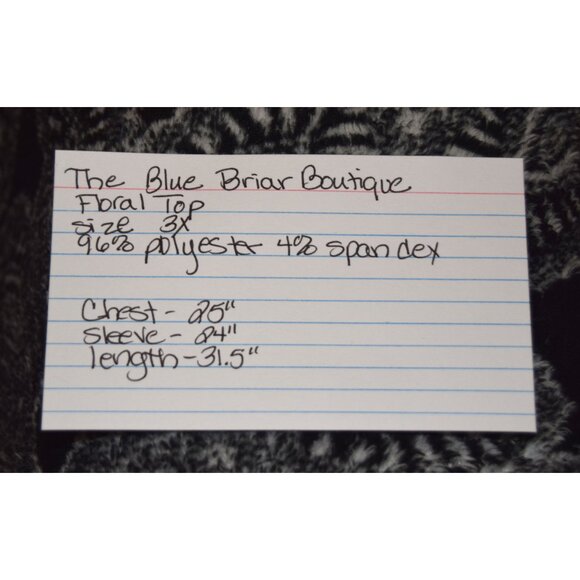 The Blue Briar Boutique
Floral Top
size 3X
96% polyester 4% spandex
Chest - 25"
sleeve - 24"
length - 31.5"